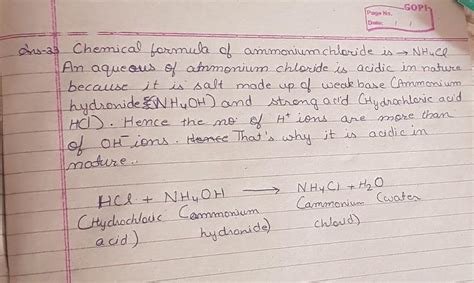 GOPI
Page No.
Date: / /
Ans-3) Chemical formula of ammonium chloride is → NH4Cl
An aqueous of ammonium chloride is acidic in nature
because it is salt made up of weak base (Ammonium
hydroxide (NH4OH) and strong acid (Hydrochloric acid
HCl). Hence the no of H+ ions are more than
of OH- ions. Hence That's why it is acidic in
nature..
HCl + NH4OH → NH4Cl + H2O
(Hydrochloric (ammonium (ammonium (water
acid) hydroxide) chloid)